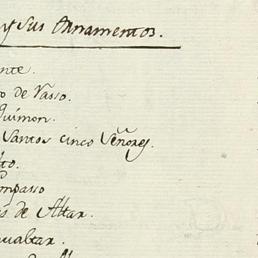 y sus Ornamentos.
ente.
o de Vasso.
quimon.
Santos cinco Señores.
to.
mpasso
s de Altar.
ualtar.